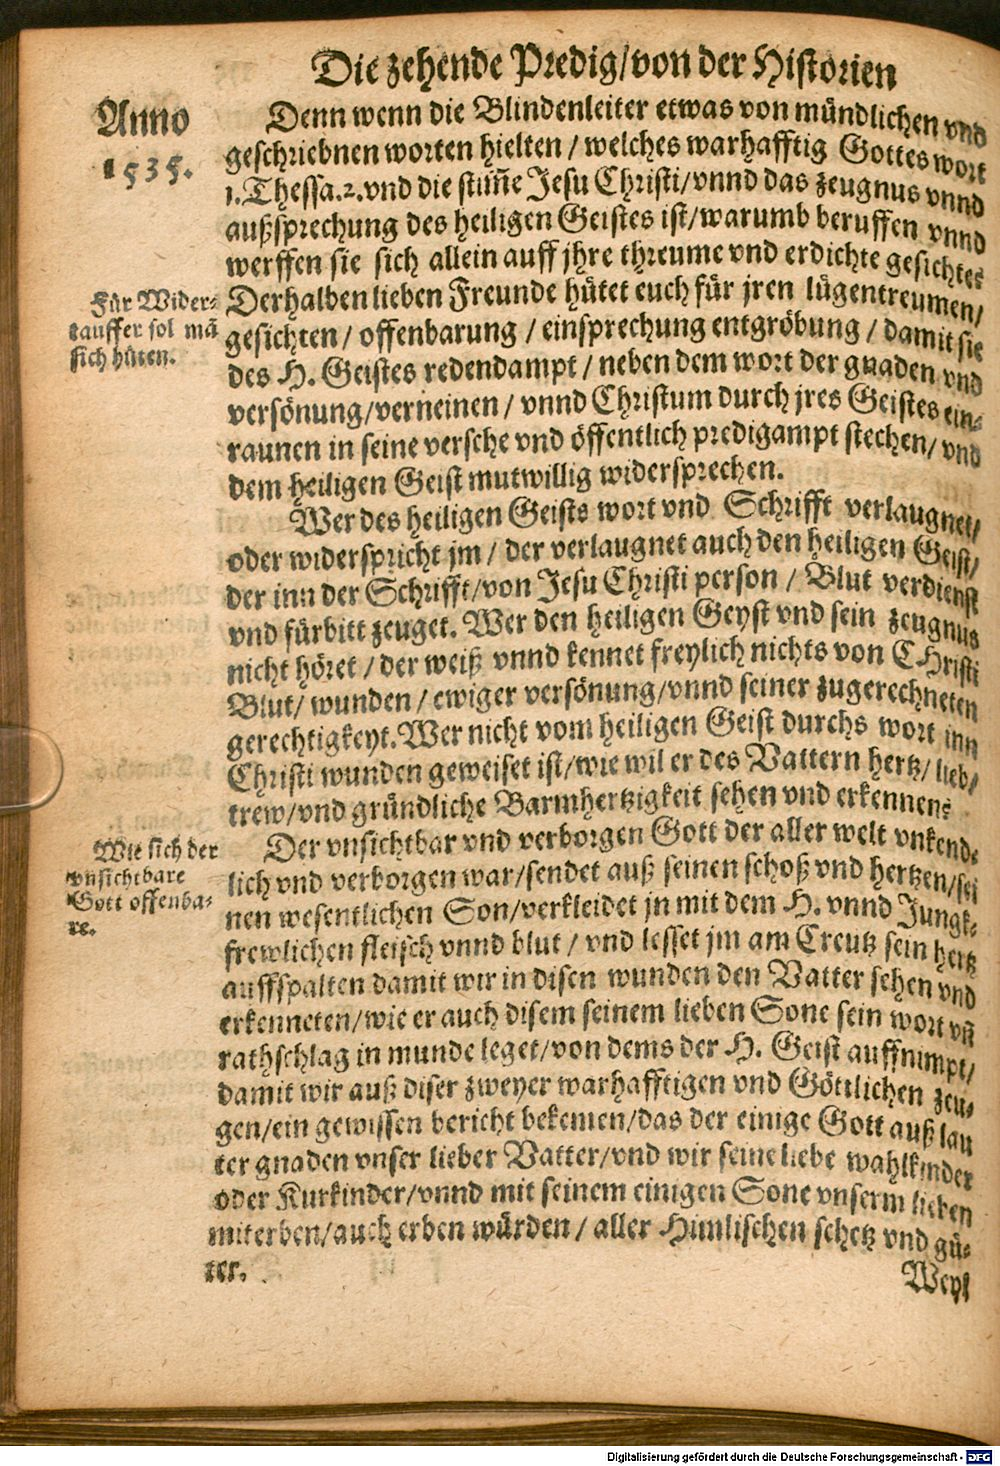 Die zehende Predig/von der Historien
Anno
1535.
Denn wenn die Blindenleiter etwas von mündlichen vnd
geschriebnen worten hielten / welches warhafftig Gottes wort
1.Thessa.2.vnd die stim̃e Jesu Christi/vnnd das zeugnus vnnd
außsprechung des heiligen Geistes ist/warumb beruffen vnnd
werffen sie sich allein auff jhre threume vnd erdichte gesichte?
Für Wider-
tauffer sol mã
sich hüten.
Derhalben lieben Freunde hütet euch für jren lügentreumen/
gesichten / offenbarung / einsprechung entgröbung / damit sie
des H. Geistes redendampt / neben dem wort der gnaden vnd
versönung/verneinen / vnnd Christum durch jres Geistes ein-
raunen in seine versche vnd öffentlich predigampt stechen/ vnd
dem heiligen Geist mutwillig widersprechen.
Wer des heiligen Geists wort vnd Schrifft verlaugnet/
oder widerspricht jm / der verlaugnet auch den heiligen Geist/
der inn der Schrifft/von Jesu Christi person / Blut verdienst
vnd fürbitt zeuget. Wer den heiligen Geyst vnd sein zeugnus
nicht höret / der weiß vnnd kennet freylich nichts von CHristi
Blut/ wunden / ewiger versönung/vnnd seiner zugerechneten
gerechtigkeyt. Wer nicht vom heiligen Geist durchs wort inn
Christi wunden geweiset ist/wie wil er des Vattern hertz/ lieb/
trew/vnd gründliche Barmhertzigkeit sehen vnd erkennen?
Wie sich der
vnsichtbare
Gott offenba-
re.
Der vnsichtbar vnd verborgen Gott der aller welt vnkend-
lich vnd verborgen war/sendet auß seinen schoß vnd hertzen/sei
nen wesentlichen Son/verkleidet jn mit dem H. vnnd Jungk-
frewlichen fleisch vnnd blut / vnd lesset jm am Creutz sein hertz
auffspalten damit wir in disen wunden den Vatter sehen vnd
erkenneten/wie er auch disem seinem lieben Sone sein wort vñ
rathschlag in munde leget/von dems der H. Geist auffnimpt/
damit wir auß diser zweyer warhafftigen vnd Göttlichen zeu-
gen/ein gewissen bericht bekemen/das der einige Gott auß lau
ter gnaden vnser lieber Vatter/vnd wir seine liebe wahlkinder
oder Kurkinder/vnnd mit seinem einigen Sone vnserm lieben
miterben/auch erben würden / aller Himlischen schetz vnd gü-
ter.
Weyl
Digitalisierung gefördert durch die Deutsche Forschungsgemeinschaft - DFG